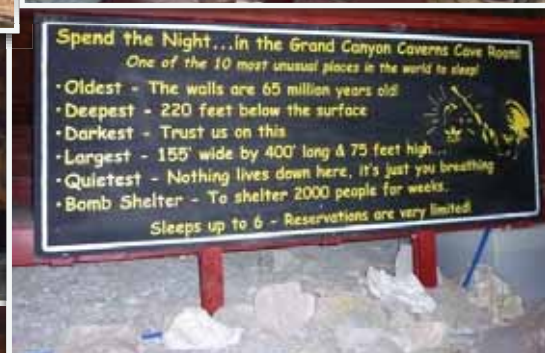 Spend the Night...in the Grand Canyon Caverns Cave Room!
One of the 10 most unusual places in the world to sleep!
• Oldest - The walls are 65 million years old!
• Deepest - 220 feet below the surface
• Darkest - Trust us on this
• Largest - 155' wide by 400' long & 75 feet high...
• Quietest - Nothing lives down here, it's just you breathing
• Bomb Shelter - To shelter 2000 people for weeks.
Sleeps up to 6 - Reservations are very limited!